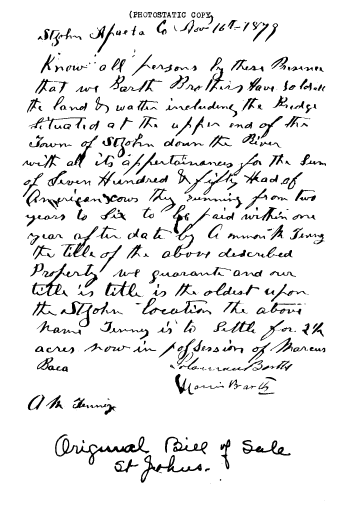 (PHOTOSTATIC COPY)
St John Apache Co Nov 16th - 1879
Know all persons by these Presence
that we Barth Brothers have sold all
the land & watter including the Ridge
Situated at the upper end of the
Town of St John down the River
with all its appertainances for the Sum
of Seven Hundred & fifty Head of
American cows they running from two
years to Six to be paid within one
year after date by Ammon M Tenny
the title of the above described
Property we guarante and our
title is title is the oldest upon
the St John location the above
name Tenny is to Settle for 2½
acres now in possession of Marcus
Baca Soloman Barth
Morris Barth
A M Tenny
Original Bill of Sale
St Johns.